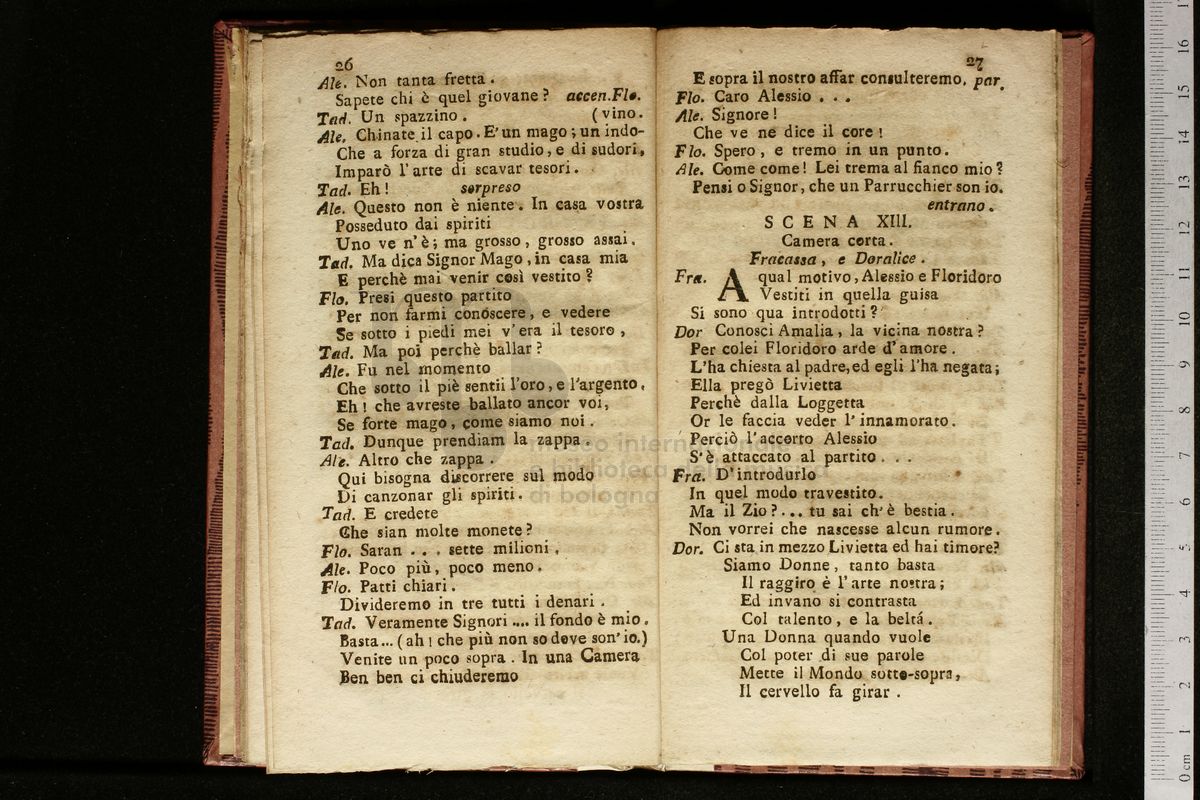 26
Ale. Non tanta fretta.
Sapete chi è quel giovane? accen.Flo.
Tad. Un spazzino. (vino.
Ale. Chinate il capo. E' un mago; un indo-
Che a forza di gran studio, e di sudori,
Imparò l'arte di scavar tesori.
Tad. Eh! sorpreso
Ale. Questo non è niente. In casa vostra
Posseduto dai spiriti
Uno ve n'è; ma grosso, grosso assai.
Tad. Ma dica Signor Mago, in casa mia
E perchè mai venir così vestito?
Flo. Presi questo partito
Per non farmi conoscere, e vedere
Se sotto i piedi mei v'era il tesoro,
Tad. Ma poi perchè ballar?
Ale. Fu nel momento
Che sotto il piè sentii l'oro, e l'argento.
Eh! che avreste ballato ancor voi,
Se forte mago, come siamo noi.
Tad. Dunque prendiam la zappa.
Ale. Altro che zappa.
Qui bisogna discorrere sul modo
Di canzonar gli spiriti.
Tad. E credete
Che sian molte monete?
Flo. Saran . . . sette milioni.
Ale. Poco più, poco meno.
Flo. Patti chiari.
Divideremo in tre tutti i denari.
Tad. Veramente Signori .... il fondo è mio.
Basta... (ah! che più non so dove son' io.)
Venite un poco sopra. In una Camera
Ben ben ci chiuderemo
27
E sopra il nostro affar consulteremo. par.
Flo. Caro Alessio . . .
Ale. Signore!
Che ve ne dice il core!
Flo. Spero, e tremo in un punto.
Ale. Come come! Lei trema al fianco mio?
Pensi o Signor, che un Parrucchier son io.
entrano.
SCENA XIII.
Camera corta.
Fracassa, e Doralice.
Fra. A qual motivo, Alessio e Floridoro
Vestiti in quella guisa
Si sono qua introdotti?
Dor Conosci Amalia, la vicina nostra?
Per colei Floridoro arde d'amore.
L'ha chiesta al padre, ed egli l'ha negata;
Ella pregò Livietta
Perchè dalla Loggetta
Or le faccia veder l'innamorato.
Perciò l'accorto Alessio
S'è attaccato al partito . . .
Fra. D'introdurlo
In quel modo travestito.
Ma il Zio?... tu sai ch'è bestia.
Non vorrei che nascesse alcun rumore.
Dor. Ci sta in mezzo Livietta ed hai timore?
Siamo Donne, tanto basta
Il raggiro è l'arte nostra;
Ed invano si contrasta
Col talento, e la beltá.
Una Donna quando vuole
Col poter di sue parole
Mette il Mondo sotto-sopra,
Il cervello fa girar.
museo internazionale
e biblioteca della musica
di bologna
0 cm 1 2 3 4 5 6 7 8 9 10 11 12 13 14 15 16